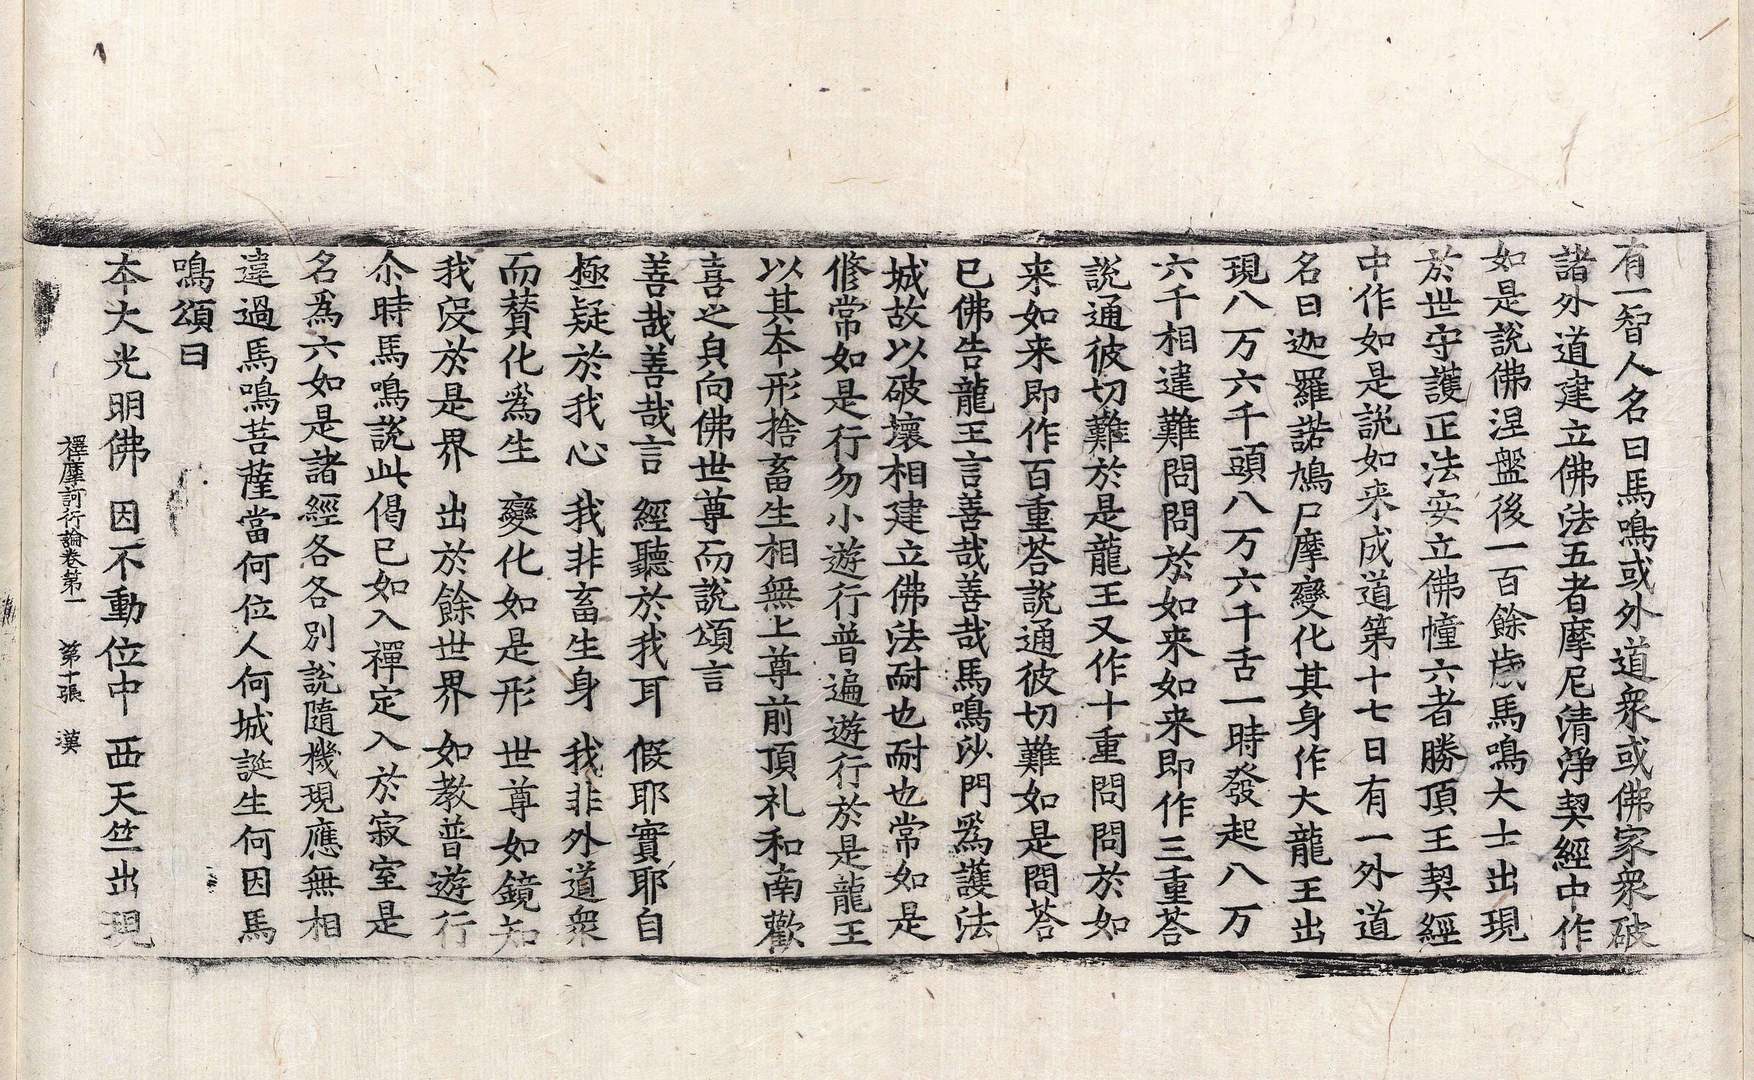 有一智人名曰馬鳴或外道衆或佛家衆破
諸外道建立佛法五者摩尼清淨契經中作
如是說佛涅盤後一百餘歲馬鳴大士出現
於世守護正法安立佛幢六者勝頂王契經
中作如是說如来成道第十七日有一外道
名曰迦羅諾鳩尸摩變化其身作大龍王出
現八万六千頭八万六千舌一時發起八万
六千相違難問問於如来如来即作三重荅
說通彼切難於是龍王又作十重問問於如
来如来即作百重荅說通彼切難如是問荅
已佛告龍王言善哉善哉馬鳴沙門爲護法
城故以破壞相建立佛法耐也耐也常如是
修常如是行勿小遊行普遍遊行於是龍王
以其本形捨畜生相無上尊前頂礼和南歡
喜之自向佛世尊而說頌言
善哉善哉言 經聽於我耳 假耶實耶自
極疑於我心 我非畜生身 我非外道衆
而賛化爲生 變化如是形 世尊如鏡知
我没於是界 出於餘世界 如教普遊行
尒時馬鳴說此偈已如入禪定入於寂室是
名爲六如是諸經各各別說隨機現應無相
違過馬鳴菩薩當何位人何城誕生何因馬
鳴頌曰
本大光明佛 因不動位中 西天竺出現
釋摩訶衍論卷第一 第十張 漢